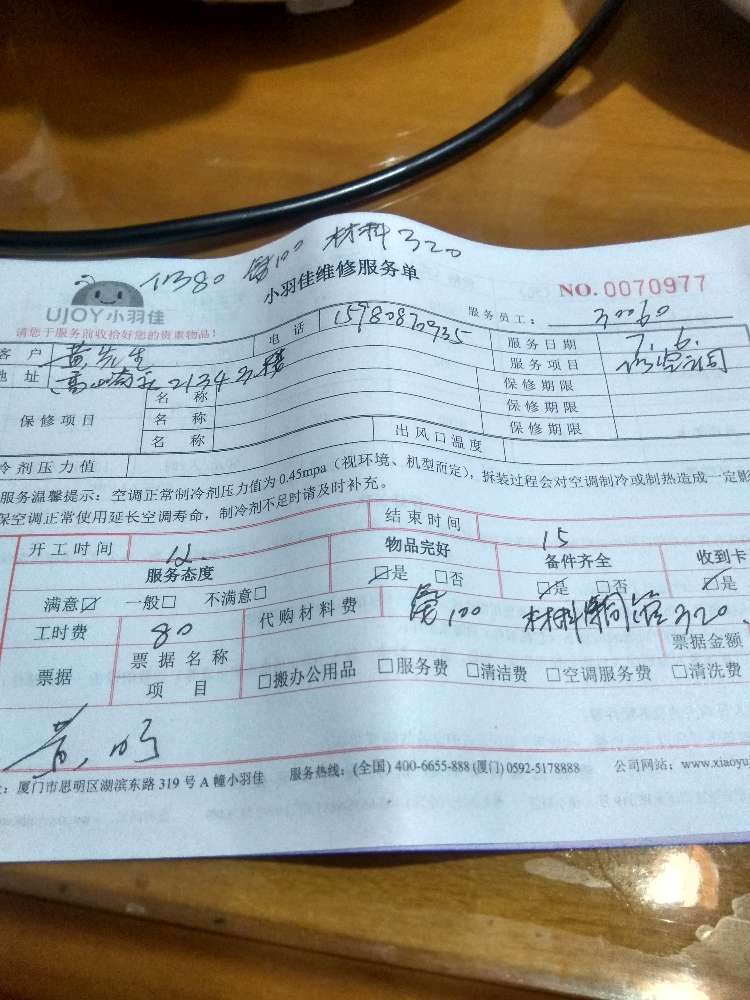 80 100 材料320
小羽佳维修服务单
UJOY小羽佳
NO.0070977
请您于服务前收拾好您的贵重物品!
服务员工: 30060
客户 黄先生 电话 15980870935 服务日期 7.6.
地址 2134 3楼 服务项目
保修项目 名称 保修期限
名称 保修期限
名称 保修期限
冷剂压力值 出风口温度
服务温馨提示:空调正常制冷剂压力值为0.45mpa(视环境、机型而定),拆装过程会对空调制冷或制热造成一定影
保空调正常使用延长空调寿命,制冷剂不足时请及时补充。
开工时间 12. 结束时间 15
服务态度 物品完好 备件齐全 收到卡
满意☑ 一般□ 不满意□ ☑是 □否 ☑是 □否 ☑是
工时费 80 代购材料费 100 材料铜管320.
票据 票据名称 票据金额
项目 □搬办公用品 □服务费 □清洁费 □空调服务费 □清洗费
:厦门市思明区湖滨东路319号A幢小羽佳 服务热线:(全国)400-6655-888(厦门)0592-5178888 公司网站:www.xiaoyu